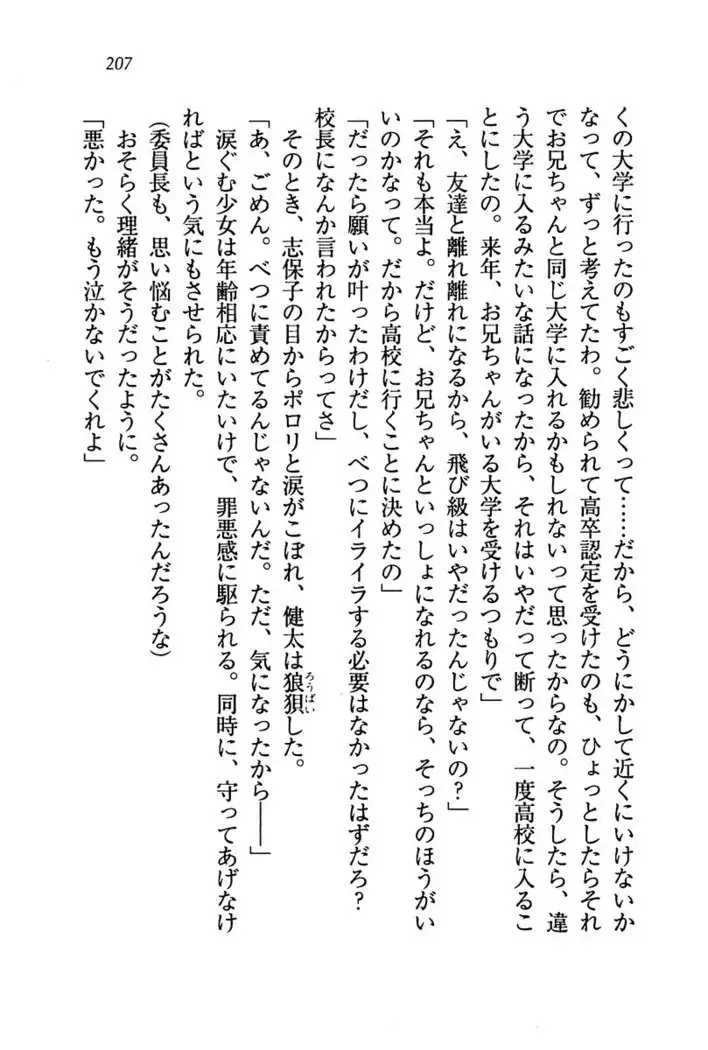 207
くの大学に行ったのもすごく悲しくって……だから、どうにかして近くにいけないか
なって、ずっと考えてたわ。勧められて高卒認定を受けたのも、ひょっとしたらそれ
でお兄ちゃんと同じ大学に入れるかもしれないって思ったからなの。そうしたら、違
う大学に入るみたいな話になったから、それはいやだって断って、一度高校に入るこ
とにしたの。来年、お兄ちゃんがいる大学を受けるつもりで」
「え、友達と離れ離れになるから、飛び級はいやだったんじゃないの？」
「それも本当よ。だけど、お兄ちゃんといっしょになれるのなら、そっちのほうがい
いのかなって。だから高校に行くことに決めたの」
「だったら願いが叶ったわけだし、べつにイライラする必要はなかったはずだろ？
校長になんか言われたからってさ」
そのとき、志保子の目からポロリと涙がこぼれ、健太は狼狽ろうばいした。
「あ、ごめん。べつに責めてるんじゃないんだ。ただ、気になったから――」
涙ぐむ少女は年齢相応にいたいけで、罪悪感に駆られる。同時に、守ってあげなけ
ればという気にもさせられた。
（委員長も、思い悩むことがたくさんあったんだろうな）
おそらく理緒がそうだったように。
「悪かった。もう泣かないでくれよ」